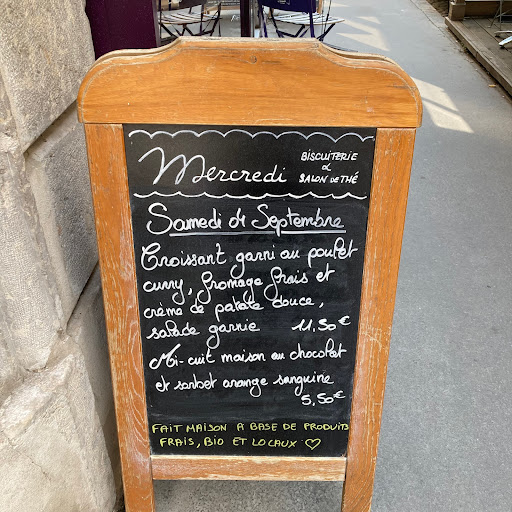 Mercredi
BISCUITERIE
&
SALON DE THÉ
Samedi 04 Septembre
Croissant garni au poulet
curry, fromage frais et
crème de patate douce,
salade garnie 11,50€
Mi-cuit maison au chocolat
et sorbet orange sanguine
5,50€
FAIT MAISON A BASE DE PRODUITS
FRAIS, BIO ET LOCAUX ♡